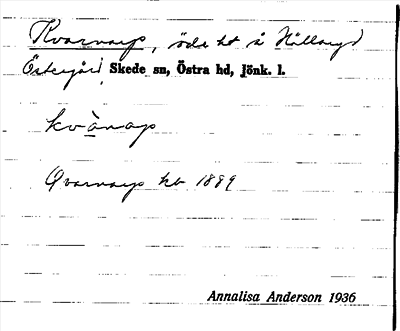 Kvarnarp, öde ht å Hållaryd
Östergård Skede sn, Östra hd, Jönk. l.
kvànap
Qvarnarp kb 1889
Annalisa Anderson 1936